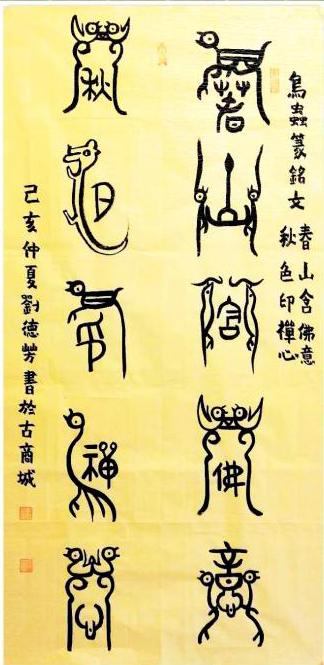 鳥蟲篆銘文
春山含佛意
秋色印禪心
春山含佛意
秋色印禪心
己亥仲夏劉德芳書於古商城